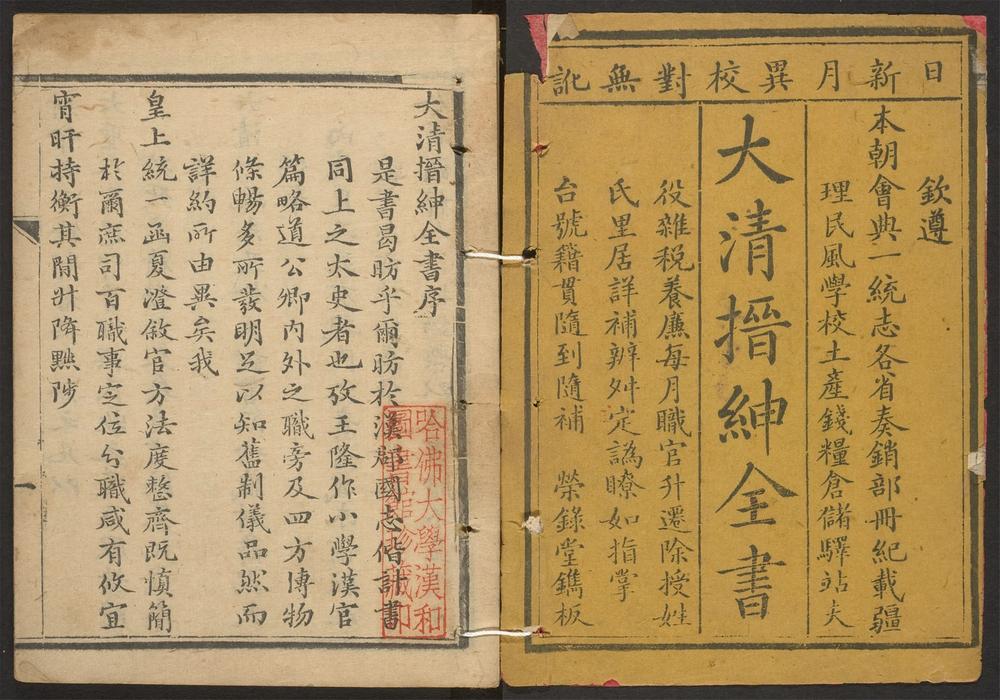 日新月異校對無訛
欽遵
本朝會典一統志各省奏銷部冊紀載疆
理民風學校土產錢糧倉儲驛站夫
大清搢紳全書
役雜稅養廉每月職官升遷除授姓
氏里居詳補辨舛定譌瞭如指掌
台號籍貫隨到隨補 榮錄堂鐫板
大清搢紳全書序
是書曷昉乎爾昉於漢郡國志偕計書
同上之太史者也攷王隆作小學漢官
篇略道公卿內外之職旁及四方博物
條暢多所發明足以知舊制儀品然而
詳約所由異矣我
皇上統一函夏澄敘官方法度整齊既慎簡
於爾庶司百職事定位分職咸有攸宜
宵旰持衡其間升降黜陟
哈佛大學漢和
圖書館珍藏印